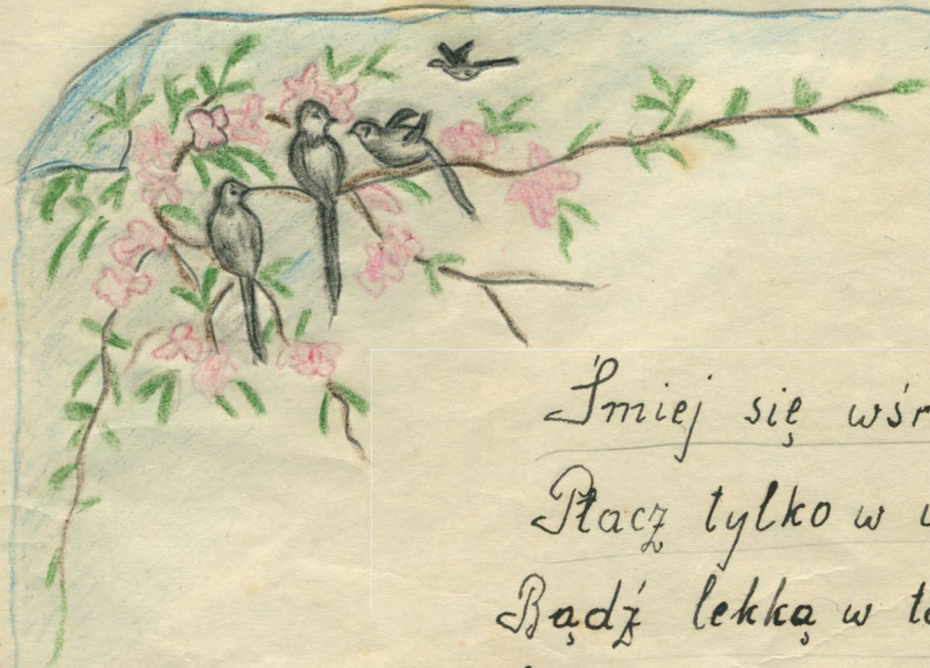 Śmiej się
Płacz tylko w
Bądź lekką w